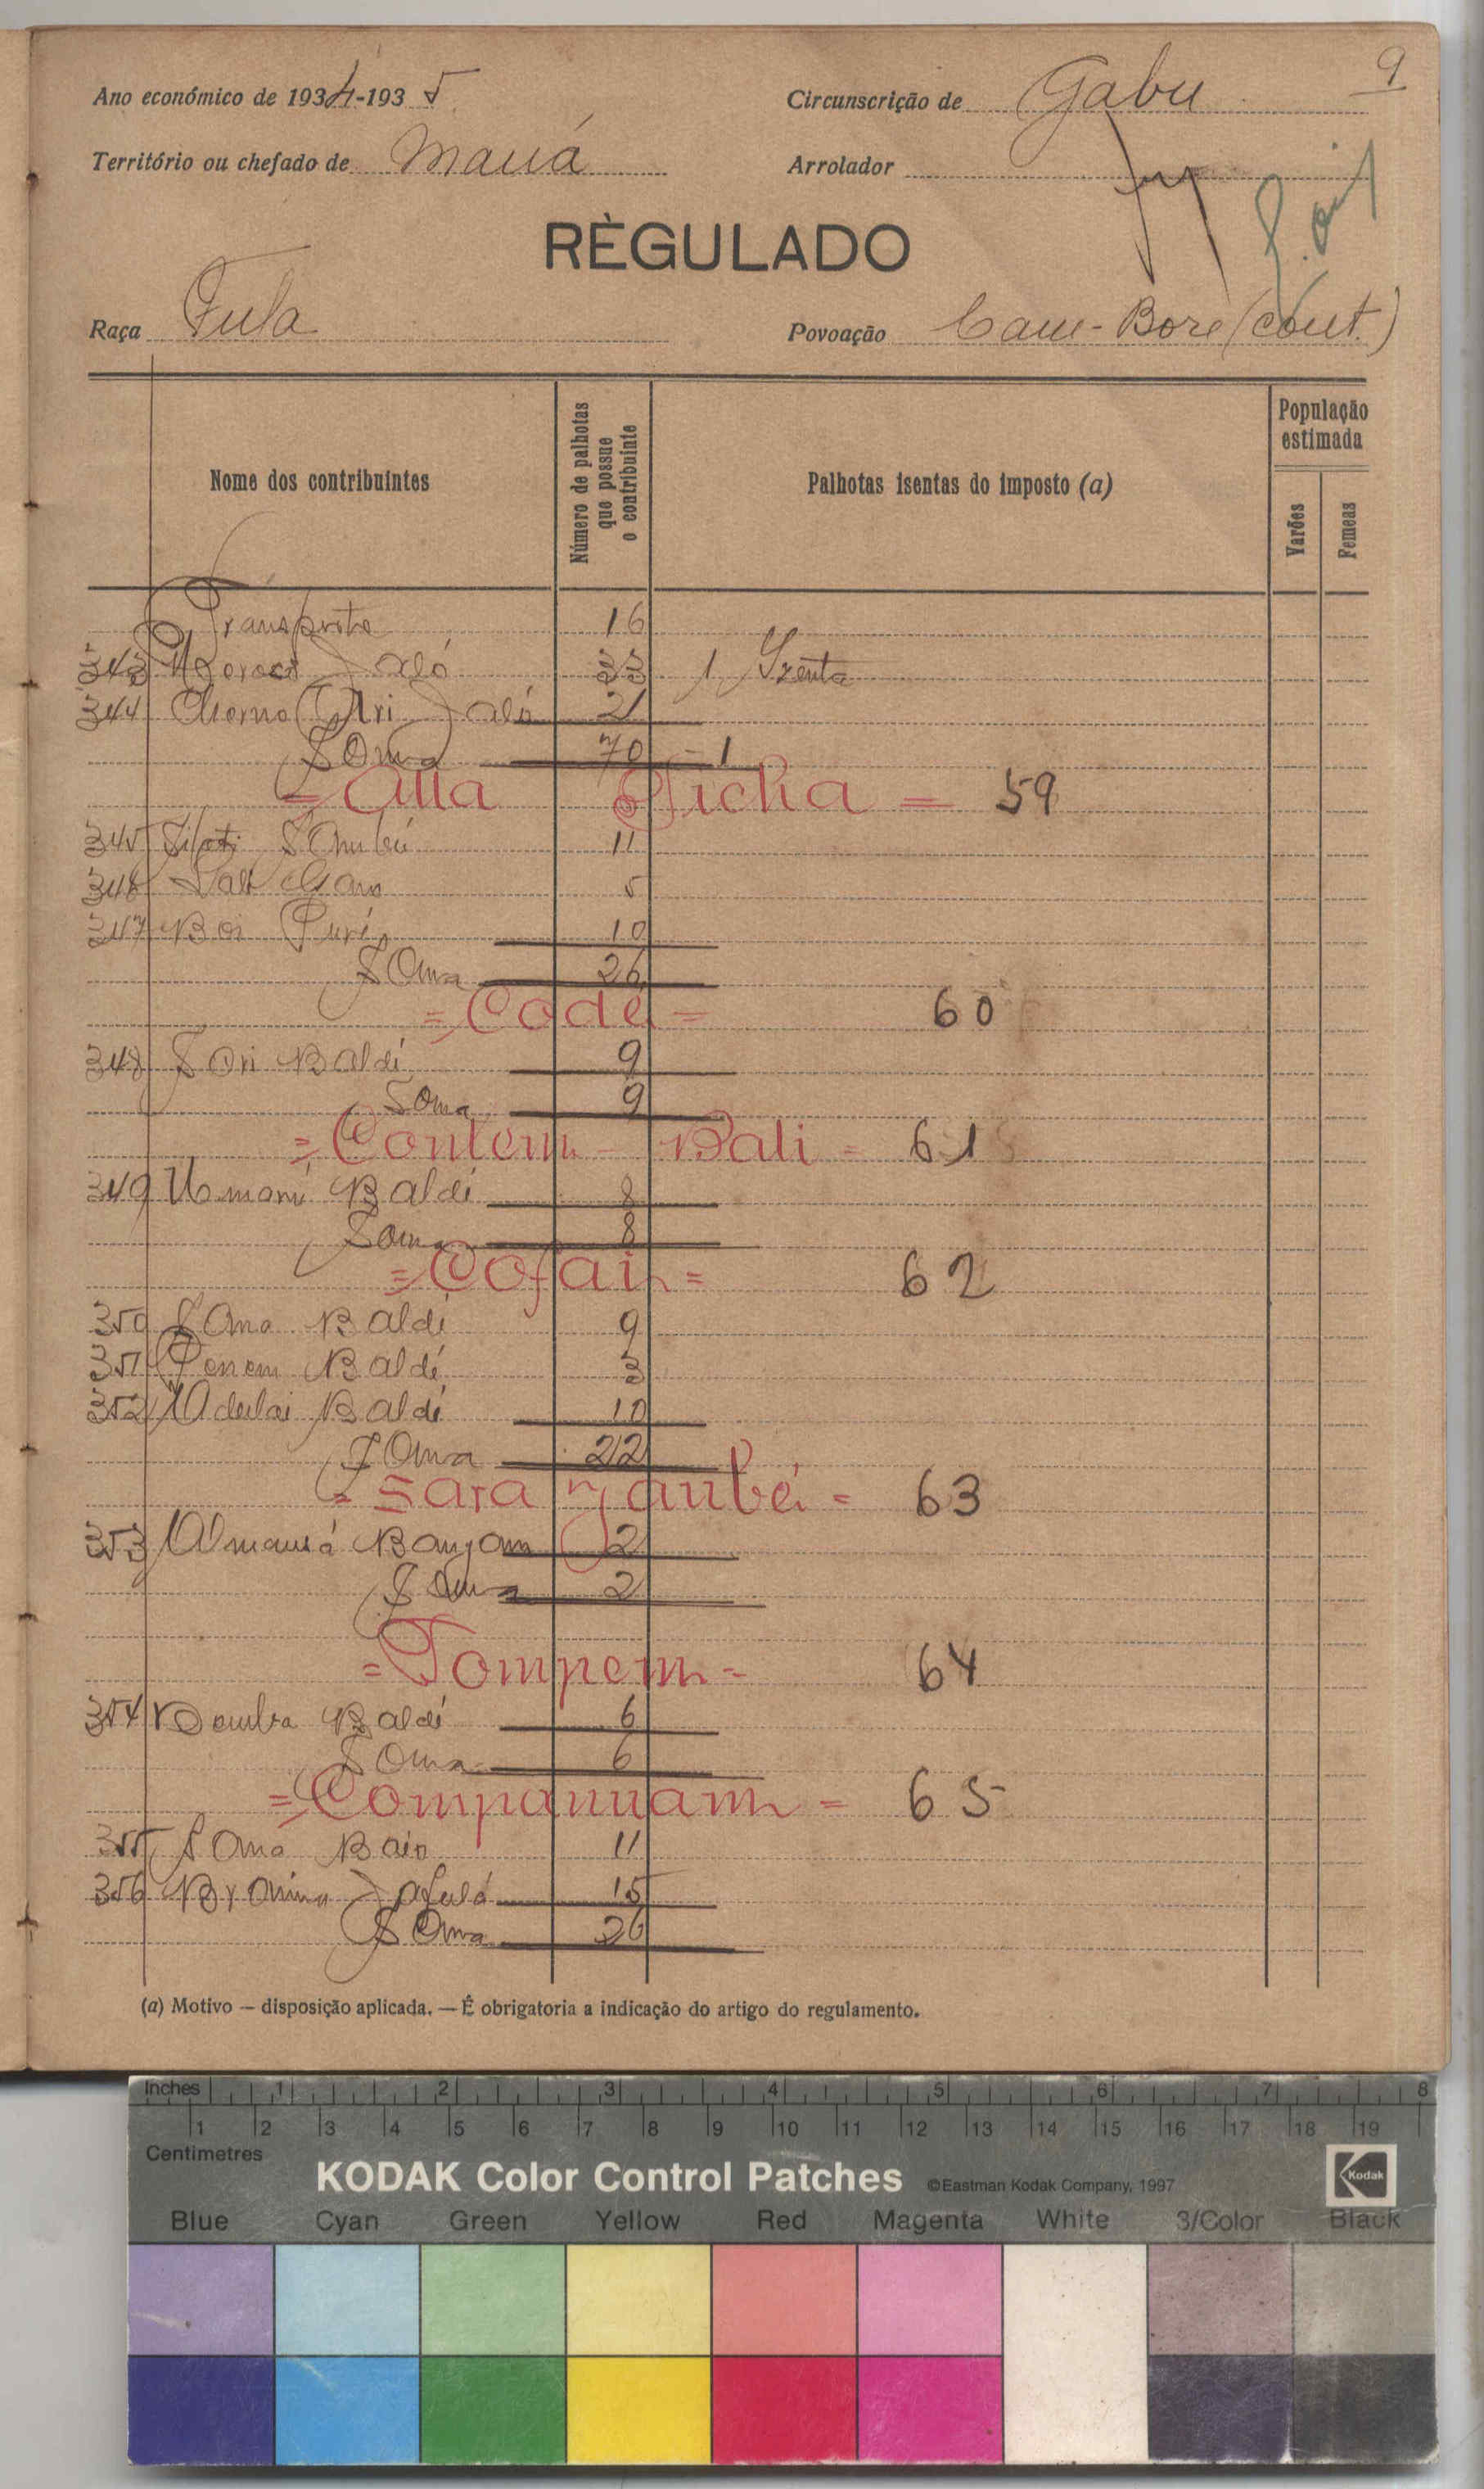 9
Ano económico de 1934-1935
Circunscrição de Gabu
Território ou chefado de Mauá
Arrolador
RÈGULADO
Raça Fula
Povoação Cam-Boré (cont.)
Nome dos contribuintes
Número de palhotas que possue o contribuinte
Palhotas isentas do imposto (a)
População estimada
Varões
Femeas
Transporte 16
343 Jaló 33 1 Izenta
344 Cherno Jaló 21
Soma 70 - 1
= Alla Ficha = 59
345 11
346 5
347 10
Soma 26
= Codé = 60
348 Sori Baldé 9
Soma 9
= Contem - Bali = 61
349 Umaru Baldé 8
Soma 8
= Cofain = 62
350 Sana Baldé 9
351 Penem Baldé 3
352 Adulai Baldé 10
Soma 22
= Sara Jaubé = 63
353 2
Soma 2
= Tompem = 64
354 Demba Baldé 6
Soma 6
= Companuam = 65
355 Sana Baio 11
356 15
Soma 26
(a) Motivo — disposição aplicada. — É obrigatoria a indicação do artigo do regulamento.
Inches 1 2 3 4 5 6 7 8
1 2 3 4 5 6 7 8 9 10 11 12 13 14 15 16 17 18 19
Centimetres
KODAK Color Control Patches ©Eastman Kodak Company, 1997 Kodak
Blue Cyan Green Yellow Red Magenta White 3/Color Black